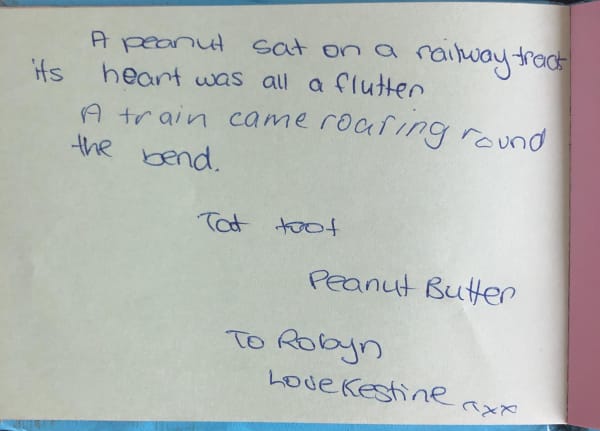 A peanut sat on a railway track
its heart was all a flutter
A train came roaring round
the bend.
Tot toot
Peanut Butter
To Robyn
Love Kestine xxx